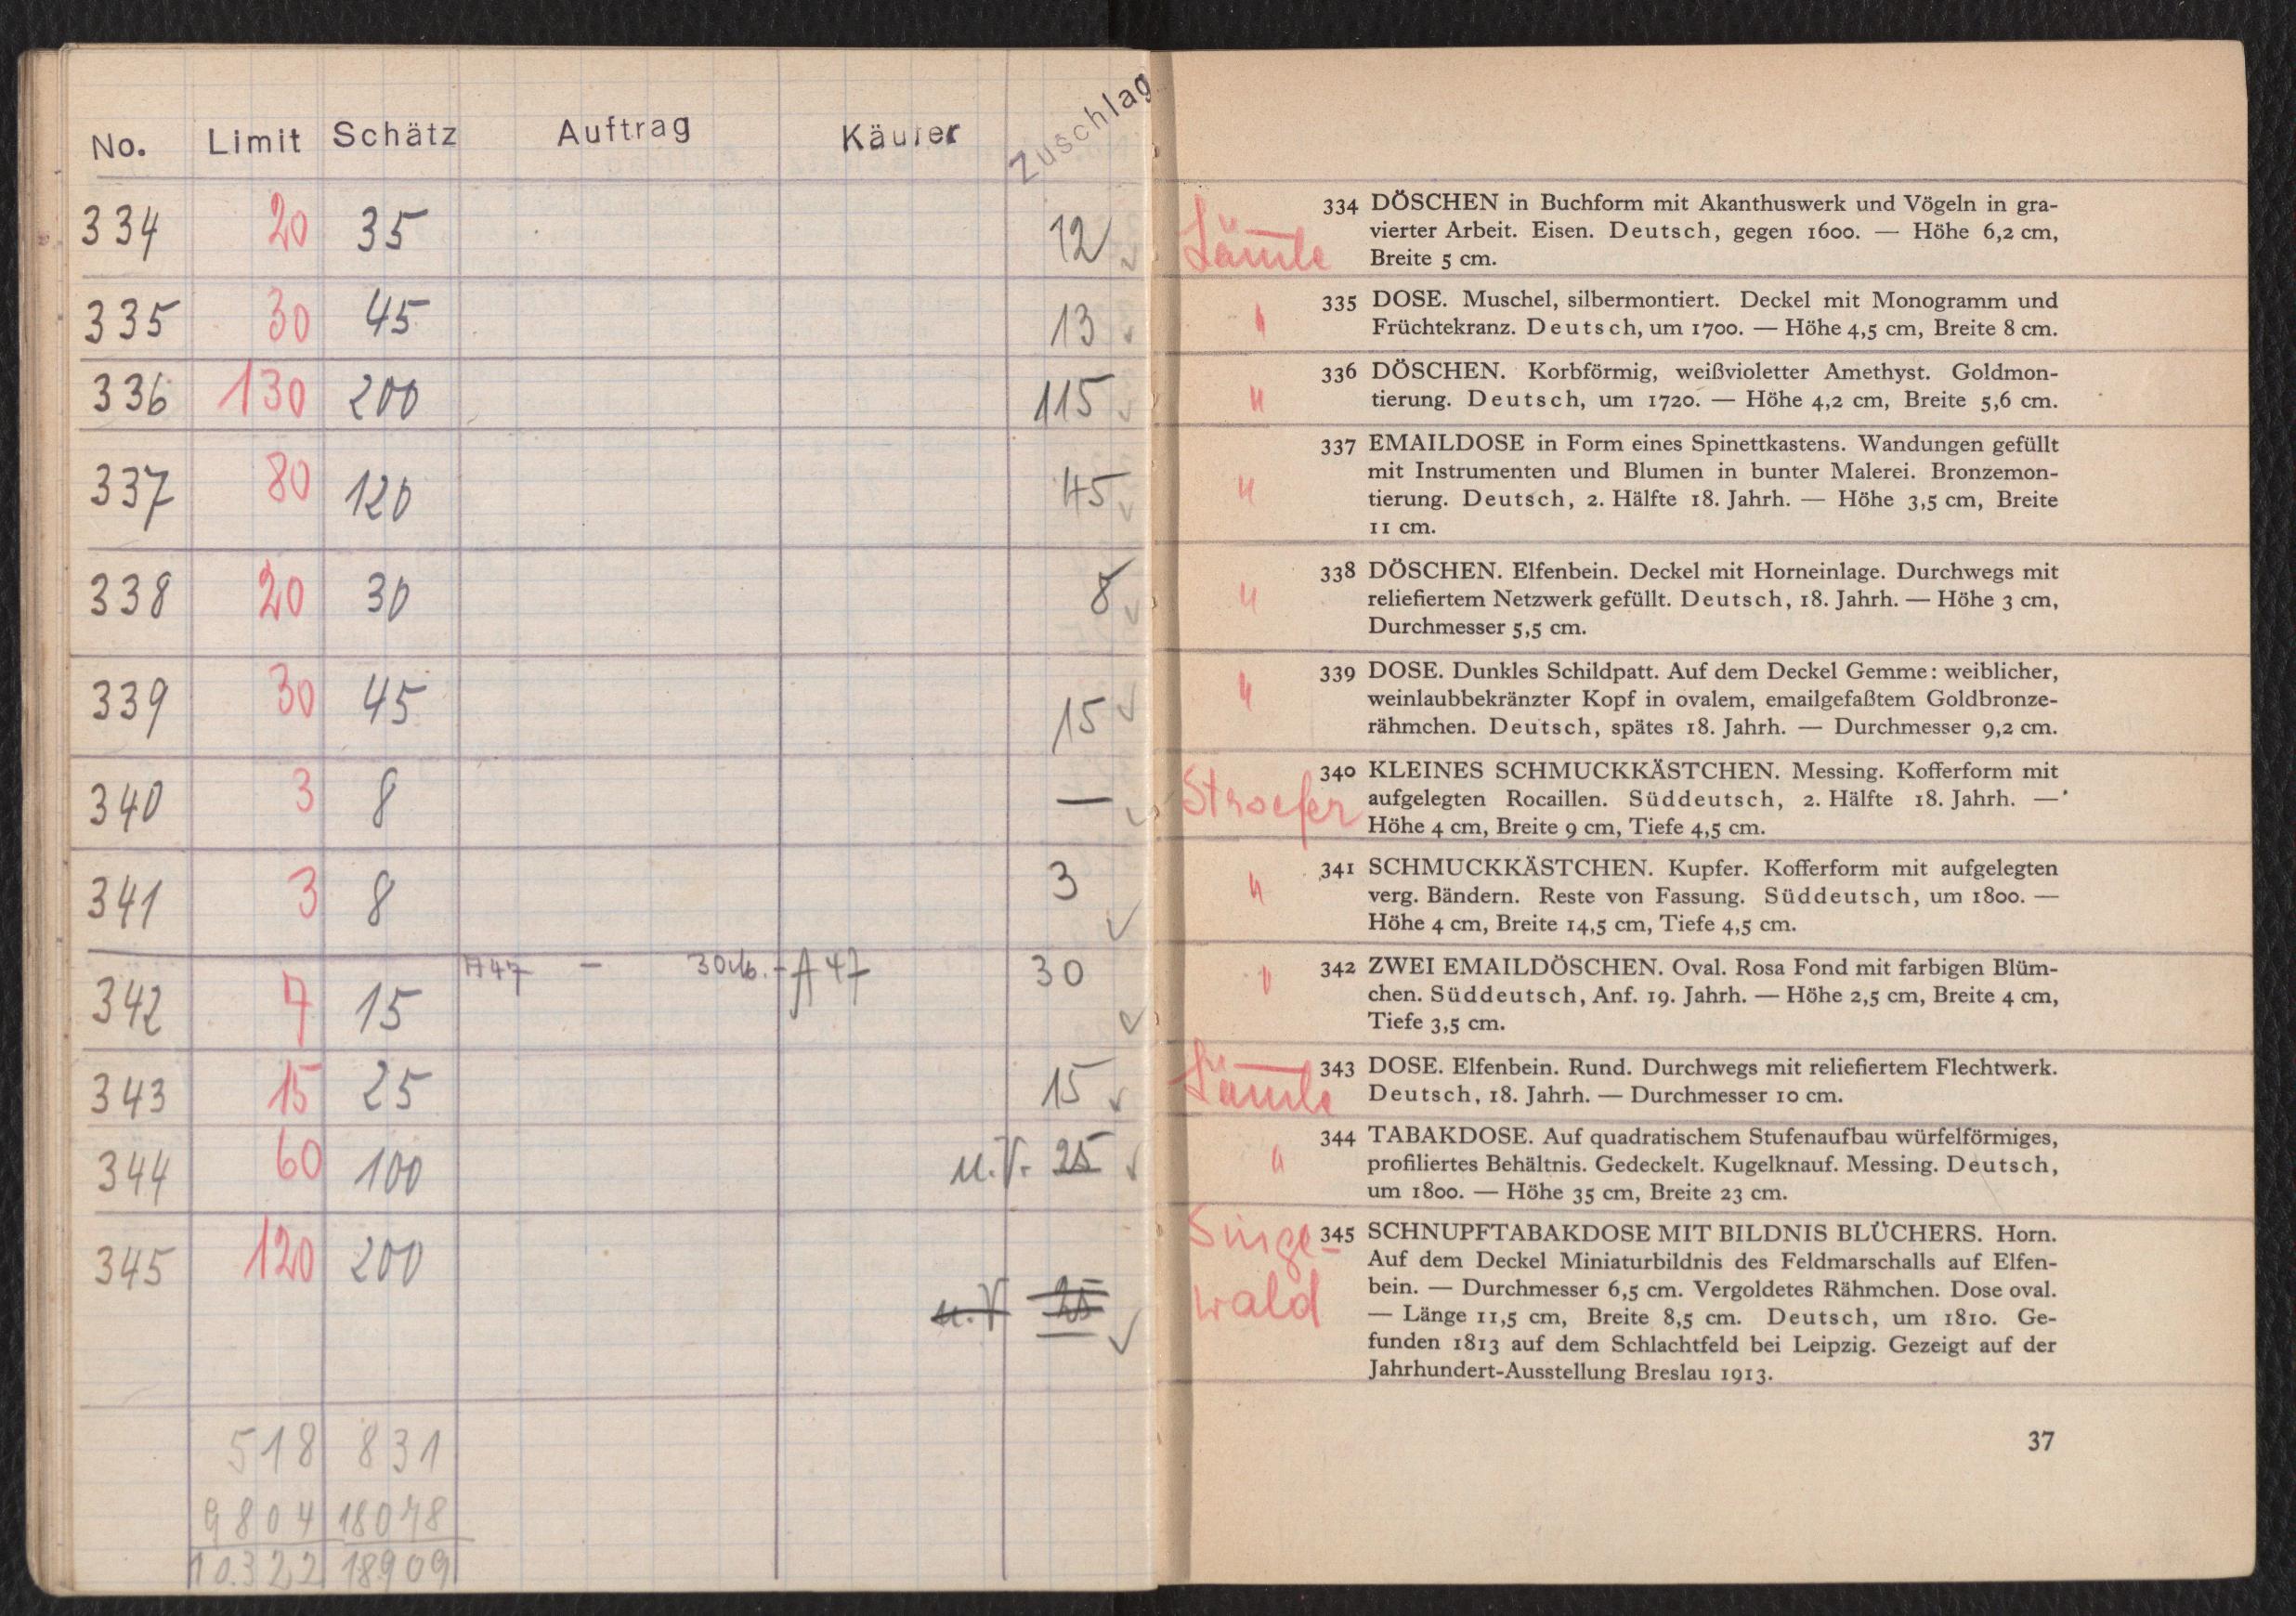 No. Limit Schätz Auftrag Käufer Zuschlag
334 20 35 12
335 30 45 13
336 130 200 115
337 80 120 45
338 20 30 8
339 30 45 15
340 3 8 —
341 3 8 3
342 7 15 A47 — 30 A 47 30
343 15 25 15
344 60 100 u.V. 25
345 120 200
u.V 25
518 831
9804 18078
10.322 18909
334 DÖSCHEN in Buchform mit Akanthuswerk und Vögeln in gra-
vierter Arbeit. Eisen. Deutsch, gegen 1600. — Höhe 6,2 cm,
Breite 5 cm.
" 335 DOSE. Muschel, silbermontiert. Deckel mit Monogramm und
Früchtekranz. Deutsch, um 1700. — Höhe 4,5 cm, Breite 8 cm.
" 336 DÖSCHEN. Korbförmig, weißvioletter Amethyst. Goldmon-
tierung. Deutsch, um 1720. — Höhe 4,2 cm, Breite 5,6 cm.
" 337 EMAILDOSE in Form eines Spinettkastens. Wandungen gefüllt
mit Instrumenten und Blumen in bunter Malerei. Bronzemon-
tierung. Deutsch, 2. Hälfte 18. Jahrh. — Höhe 3,5 cm, Breite
11 cm.
" 338 DÖSCHEN. Elfenbein. Deckel mit Horneinlage. Durchwegs mit
reliefiertem Netzwerk gefüllt. Deutsch, 18. Jahrh. — Höhe 3 cm,
Durchmesser 5,5 cm.
" 339 DOSE. Dunkles Schildpatt. Auf dem Deckel Gemme: weiblicher,
weinlaubbekränzter Kopf in ovalem, emailgefaßtem Goldbronze-
rähmchen. Deutsch, spätes 18. Jahrh. — Durchmesser 9,2 cm.
Stroefer 340 KLEINES SCHMUCKKÄSTCHEN. Messing. Kofferform mit
aufgelegten Rocaillen. Süddeutsch, 2. Hälfte 18. Jahrh. —
Höhe 4 cm, Breite 9 cm, Tiefe 4,5 cm.
" 341 SCHMUCKKÄSTCHEN. Kupfer. Kofferform mit aufgelegten
verg. Bändern. Reste von Fassung. Süddeutsch, um 1800. —
Höhe 4 cm, Breite 14,5 cm, Tiefe 4,5 cm.
" 342 ZWEI EMAILDÖSCHEN. Oval. Rosa Fond mit farbigen Blüm-
chen. Süddeutsch, Anf. 19. Jahrh. — Höhe 2,5 cm, Breite 4 cm,
Tiefe 3,5 cm.
343 DOSE. Elfenbein. Rund. Durchwegs mit reliefiertem Flechtwerk.
Deutsch, 18. Jahrh. — Durchmesser 10 cm.
" 344 TABAKDOSE. Auf quadratischem Stufenaufbau würfelförmiges,
profiliertes Behältnis. Gedeckelt. Kugelknauf. Messing. Deutsch,
um 1800. — Höhe 35 cm, Breite 23 cm.
Singe- 345 SCHNUPFTABAKDOSE MIT BILDNIS BLÜCHERS. Horn.
Auf dem Deckel Miniaturbildnis des Feldmarschalls auf Elfen-
wald bein. — Durchmesser 6,5 cm. Vergoldetes Rähmchen. Dose oval.
— Länge 11,5 cm, Breite 8,5 cm. Deutsch, um 1810. Ge-
funden 1813 auf dem Schlachtfeld bei Leipzig. Gezeigt auf der
Jahrhundert-Ausstellung Breslau 1913.
37